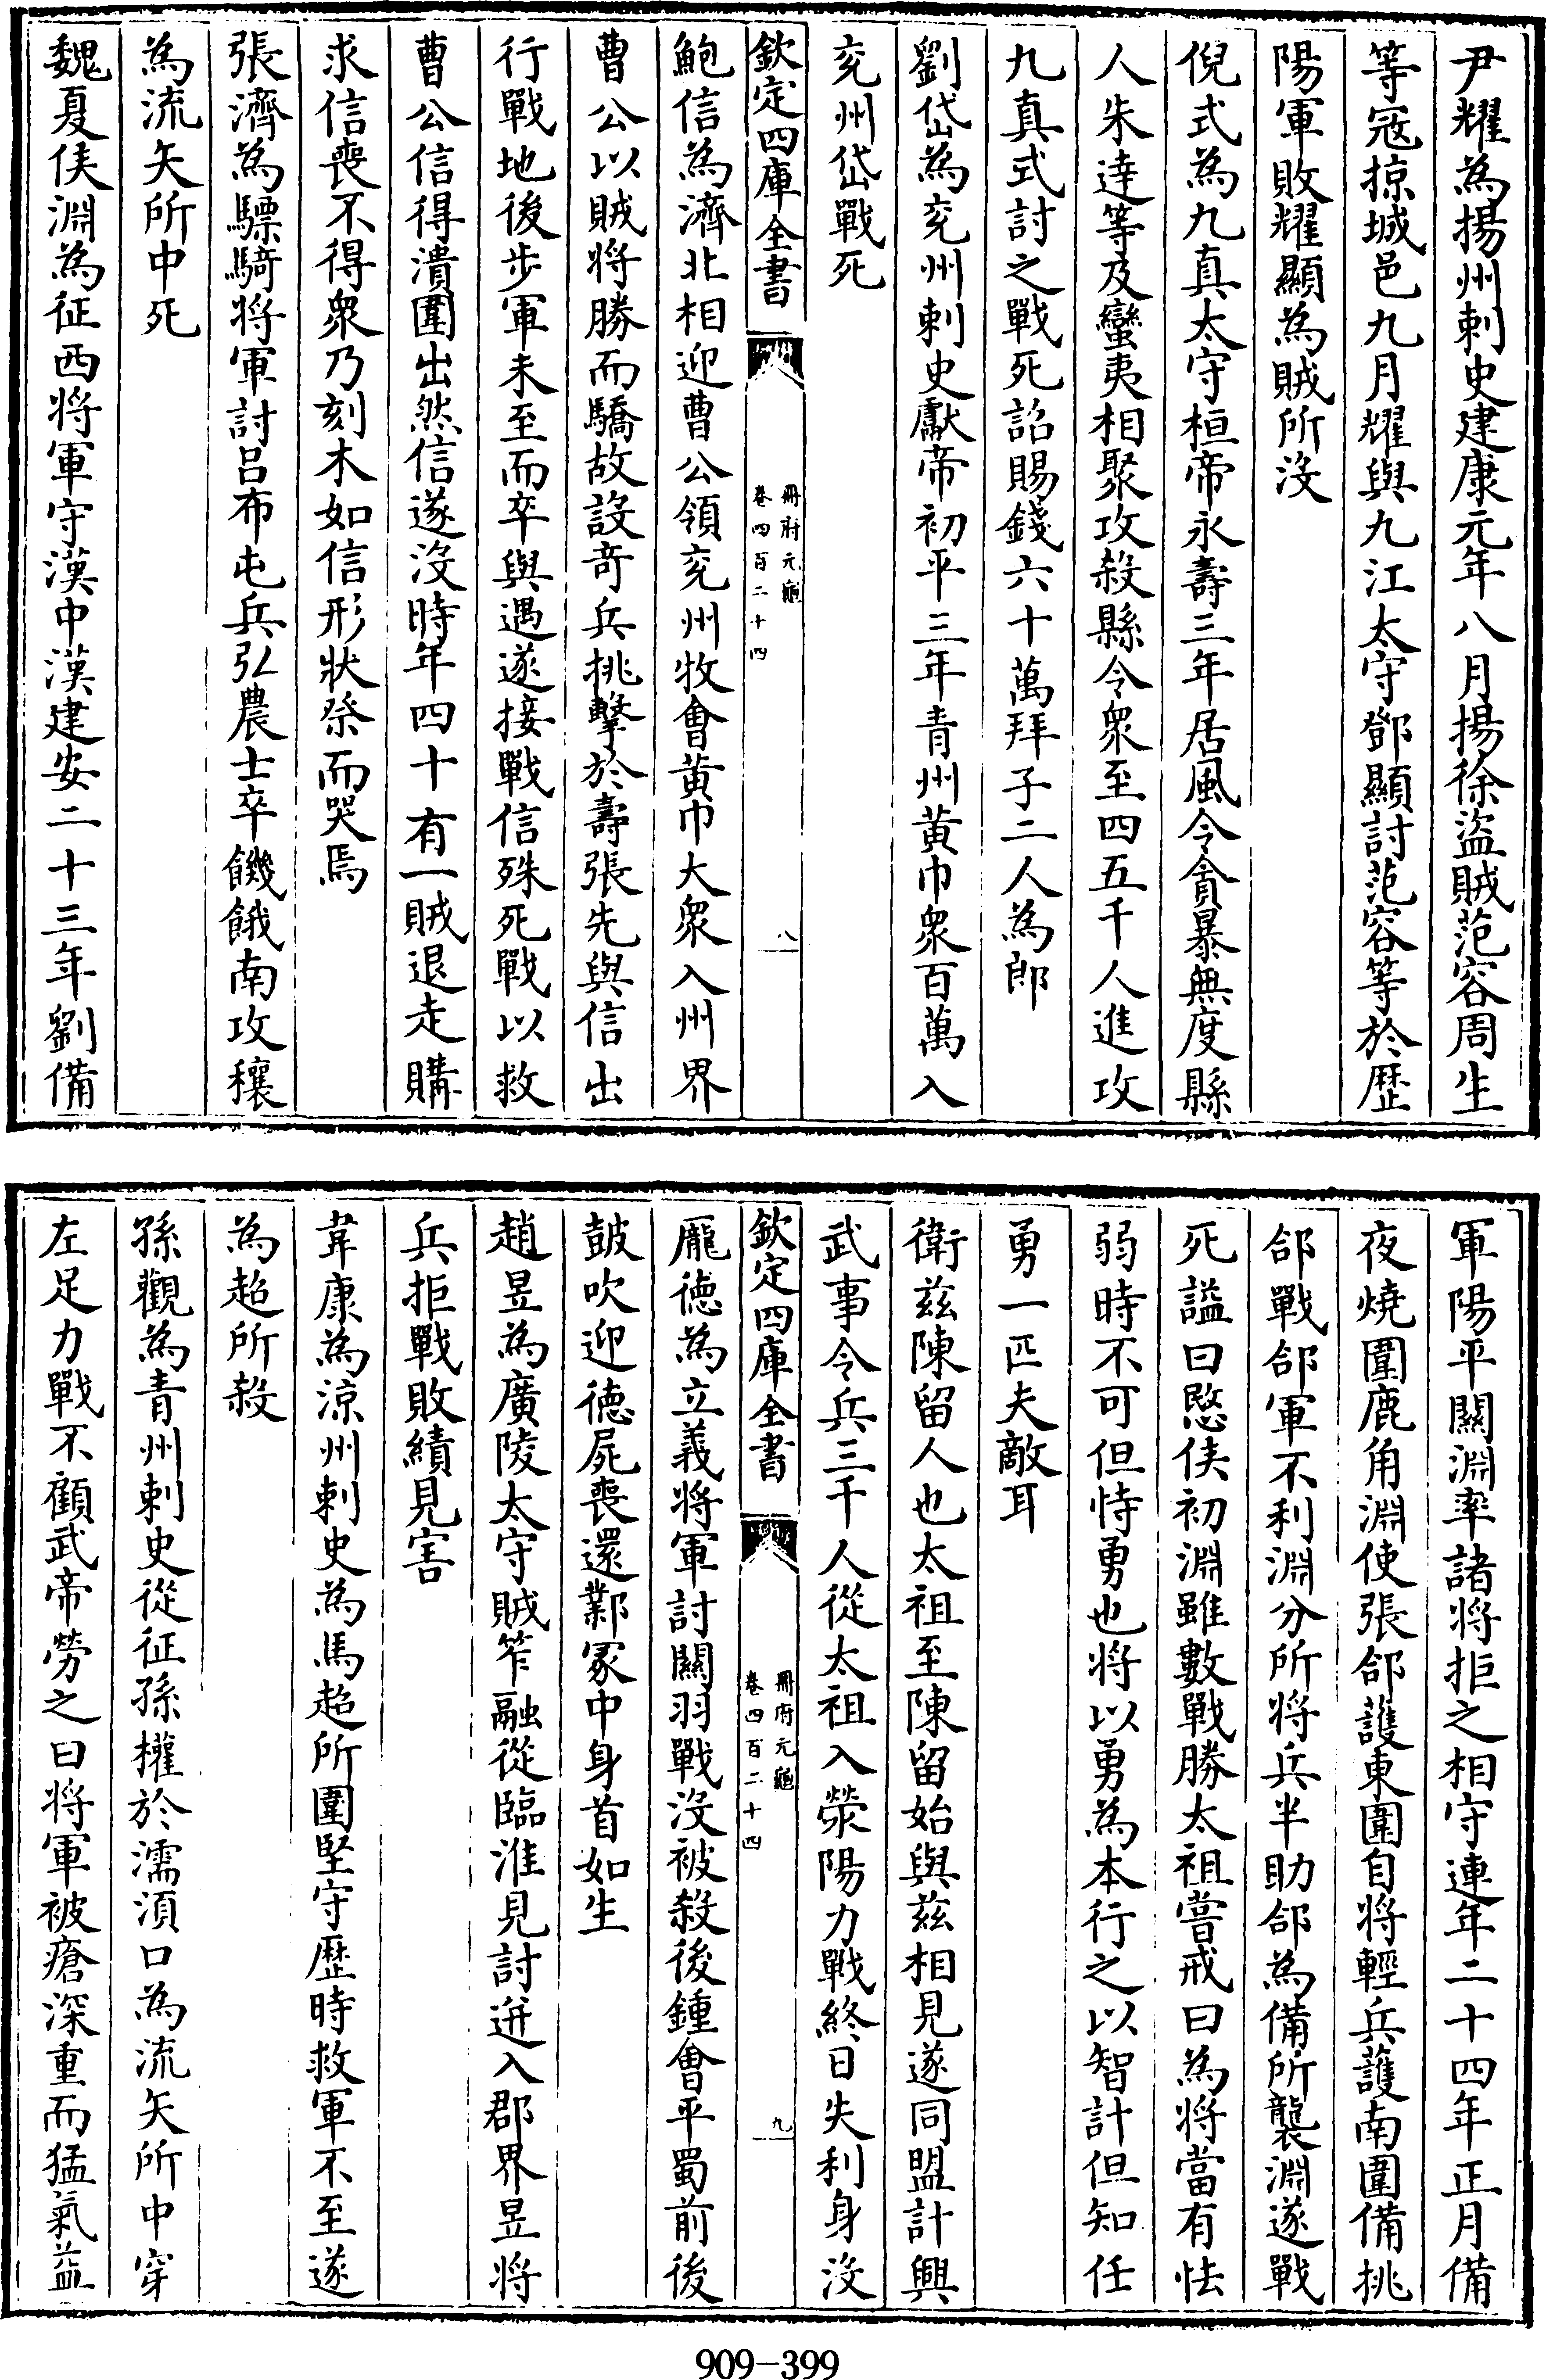 尹耀為揚州刺史建康元年八月揚徐盜賊范容周生
等寇掠城邑九月耀與九江太守鄧顯討范容等於歷
陽軍敗耀顯為賊所沒
倪式為九真太守桓帝永壽三年居風令貪暴無度縣
人朱達等及蠻夷相聚攻殺縣令衆至四五千人進攻
九真式討之戰死詔賜錢六十萬拜子二人為郎
劉岱為兖州刺史獻帝初平三年青州黄巾衆百萬入
兖州岱戰死
欽定四庫全書
冊府元龜
卷四百二十四
八
鮑信為濟北相迎曹公領兖州牧會黄巾大衆入州界
曹公以賊將勝而驕故設竒兵挑擊於壽張先與信出
行戰地後步軍未至而卒與遇遂接戰信殊死戰以救
曹公信得潰圍出然信遂沒時年四十有一賊退走購
求信喪不得衆乃刻木如信形狀祭而哭焉
張濟為驃騎將軍討吕布屯兵弘農士卒饑餓南攻穰
為流矢所中死
魏夏侯淵為征西將軍守漢中漢建安二十三年劉備
軍陽平關淵率諸將拒之相守連年二十四年正月備
夜燒圍鹿角淵使張郃護東圍自將輕兵護南圍備挑
郃戰郃軍不利淵分所將兵半助郃為備所襲淵遂戰
死謚曰愍侯初淵雖數戰勝太祖嘗戒曰為將當有怯
弱時不可但恃勇也將以勇為本行之以智計但知任
勇一匹夫敵耳
衛兹陳留人也太祖至陳留始與兹相見遂同盟計興
武事令兵三千人從太祖入滎陽力戰終日失利身沒
欽定四庫全書
冊府元龜
卷四百二十四
九
龐徳為立義將軍討關羽戰沒被殺後鍾會平蜀前後
鼓吹迎徳屍喪還鄴冢中身首如生
趙昱為廣陵太守賊笮融從臨淮見討迸入郡界昱將
兵拒戰敗績見害
韋康為涼州刺史為馬超所圍堅守歷時救軍不至遂
為超所殺
孫觀為青州刺史從征孫權於濡須口為流矢所中穿
左足力戰不顧武帝勞之曰將軍被瘡深重而猛氣益
909-399